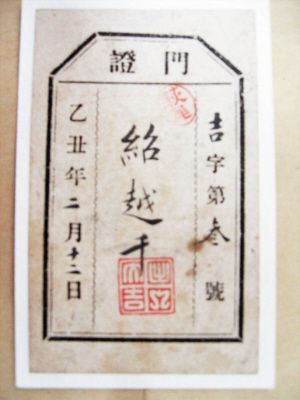 門證
吉字第叁號
紹越千
乙丑年二月十二日